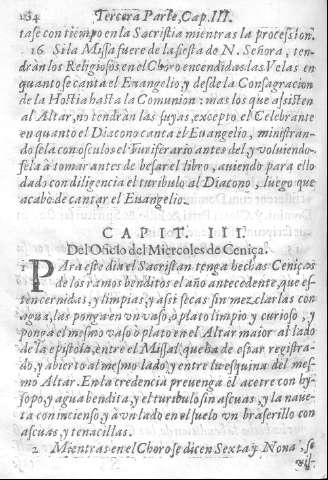 184 Tercera Parte, Cap. III.
tase con tiempo en la Sacristia mientras la procession.
16. Si la Missa fuere de la fiesta de N. Señora, ten-
dràn los Religiosos en el Choro encendidas las Velas en
quanto se canta el Evangelio, y desde la Consagracion
de la Hostia hasta la Comunion: mas los que assisten
al Altar, no tendràn las suyas, excepto el Celebrante
en quanto el Diacono canta el Evangelio, ministràn-
dosela con osculos el Turiferario antes del, y volviendo-
sela à tomar antes de besar el libro, auiendo para ello
dado con diligencia el turibulo al Diacono, luego que
acabò de cantar el Euangelio.
CAPIT. III.
Del Oficio del Miercoles de Ceniça.
1 PAra este dia el Sacristan tenga hechas Ceniças
de los ramos benditos el año antecedente, que es-
ten cernidas, y limpias, y assi secas sin mezclarlas con
agua, las ponga en vn vaso, ò plato limpio y curioso, y
ponga el mesmo vaso ò plato en el Altar maior al lado
de la epistola, entre el Missal, que ha de estar registra-
do, y abierto al mesmo lado, y entre la esquina del mes-
mo Altar. En la credencia prevenga el acetre con hy-
sopo, y agua bendita, y el turibulo sin ascuas, y la naue-
ta con incienso, y à vn lado en el suelo vn braserillo con
ascuas, y tenacillas.
2 Mientras en el Choro se dicen Sexta y Nona, se